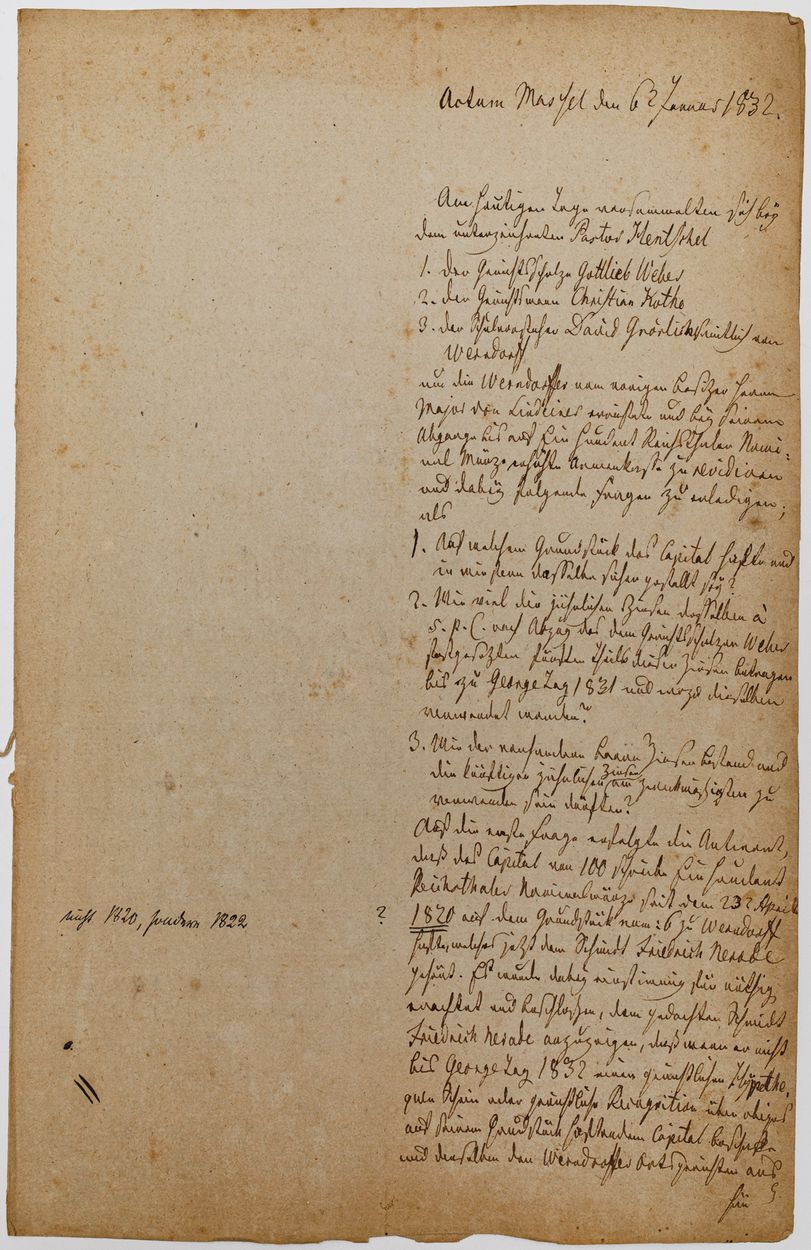 Actum Massel den 6t Januar 1832.
Am heutigen Tage versammelten sich bey
dem unterzeichneten Pastor Hentschel
1. der Gerichtsscholze Gottlieb Weber
2. der Gerichtsmann Christian Kothe
3. der Schulvorsteher David sämtlich von
Werndorff
um die Werndorffer vom vorigen Besitzer Herrn
Major von errichtete und bey seinem
Abgange bis auf Ein Hundert Reichsthaler Nomi-
nal Münze erhöhte Armenkasse zu revidiren
und dabey folgende Fragen zu erledigen;
als
1. Auf welchem Grundstück das Capital hafte und
in wie fern dasselbe sicher gestellt sey?
2. Wie viel die jährlichen Zinsen desselben à
5. p. C. nach Abzug des dem Gerichtsscholzen Weber
festgesetzten fünften Theils dieser Zinsen betragen
bis zu George Tag 1831 und wozu dieselben
verwendet worden?
3. Wie der vorhandene baare Zinsen bestand und
die künftigen jährlichen Zinsen am zweckmäßigsten zu
verwenden sein dürften?
Auf die erste Frage erfolgte die Antwort,
daß das Capital von 100 schreibe Ein Hundert
Reichsthaler Nominalmünze seit dem 23t Aprill
nicht 1820, sondern 1822
? 1820 auf dem Grundstück num: 6 zu Werndorff
hafte, welches jetzt dem Schmidt Friedrich Nerade
gehört. Es wurde dabey einstimmig für nöthig
erachtet und beschlossen, dem gedachten Schmidt
Friedrich Nerade anzuzeigen, daß wenn er nicht
bis George Tag 1832 einen gerichtlichen Hypothe-
quen Schein oder gerichtliche Recognition über obiges
auf seinem Grundstück haftendem Capital beschafft
und denselben den Werndorffer Ortsgerichten aus